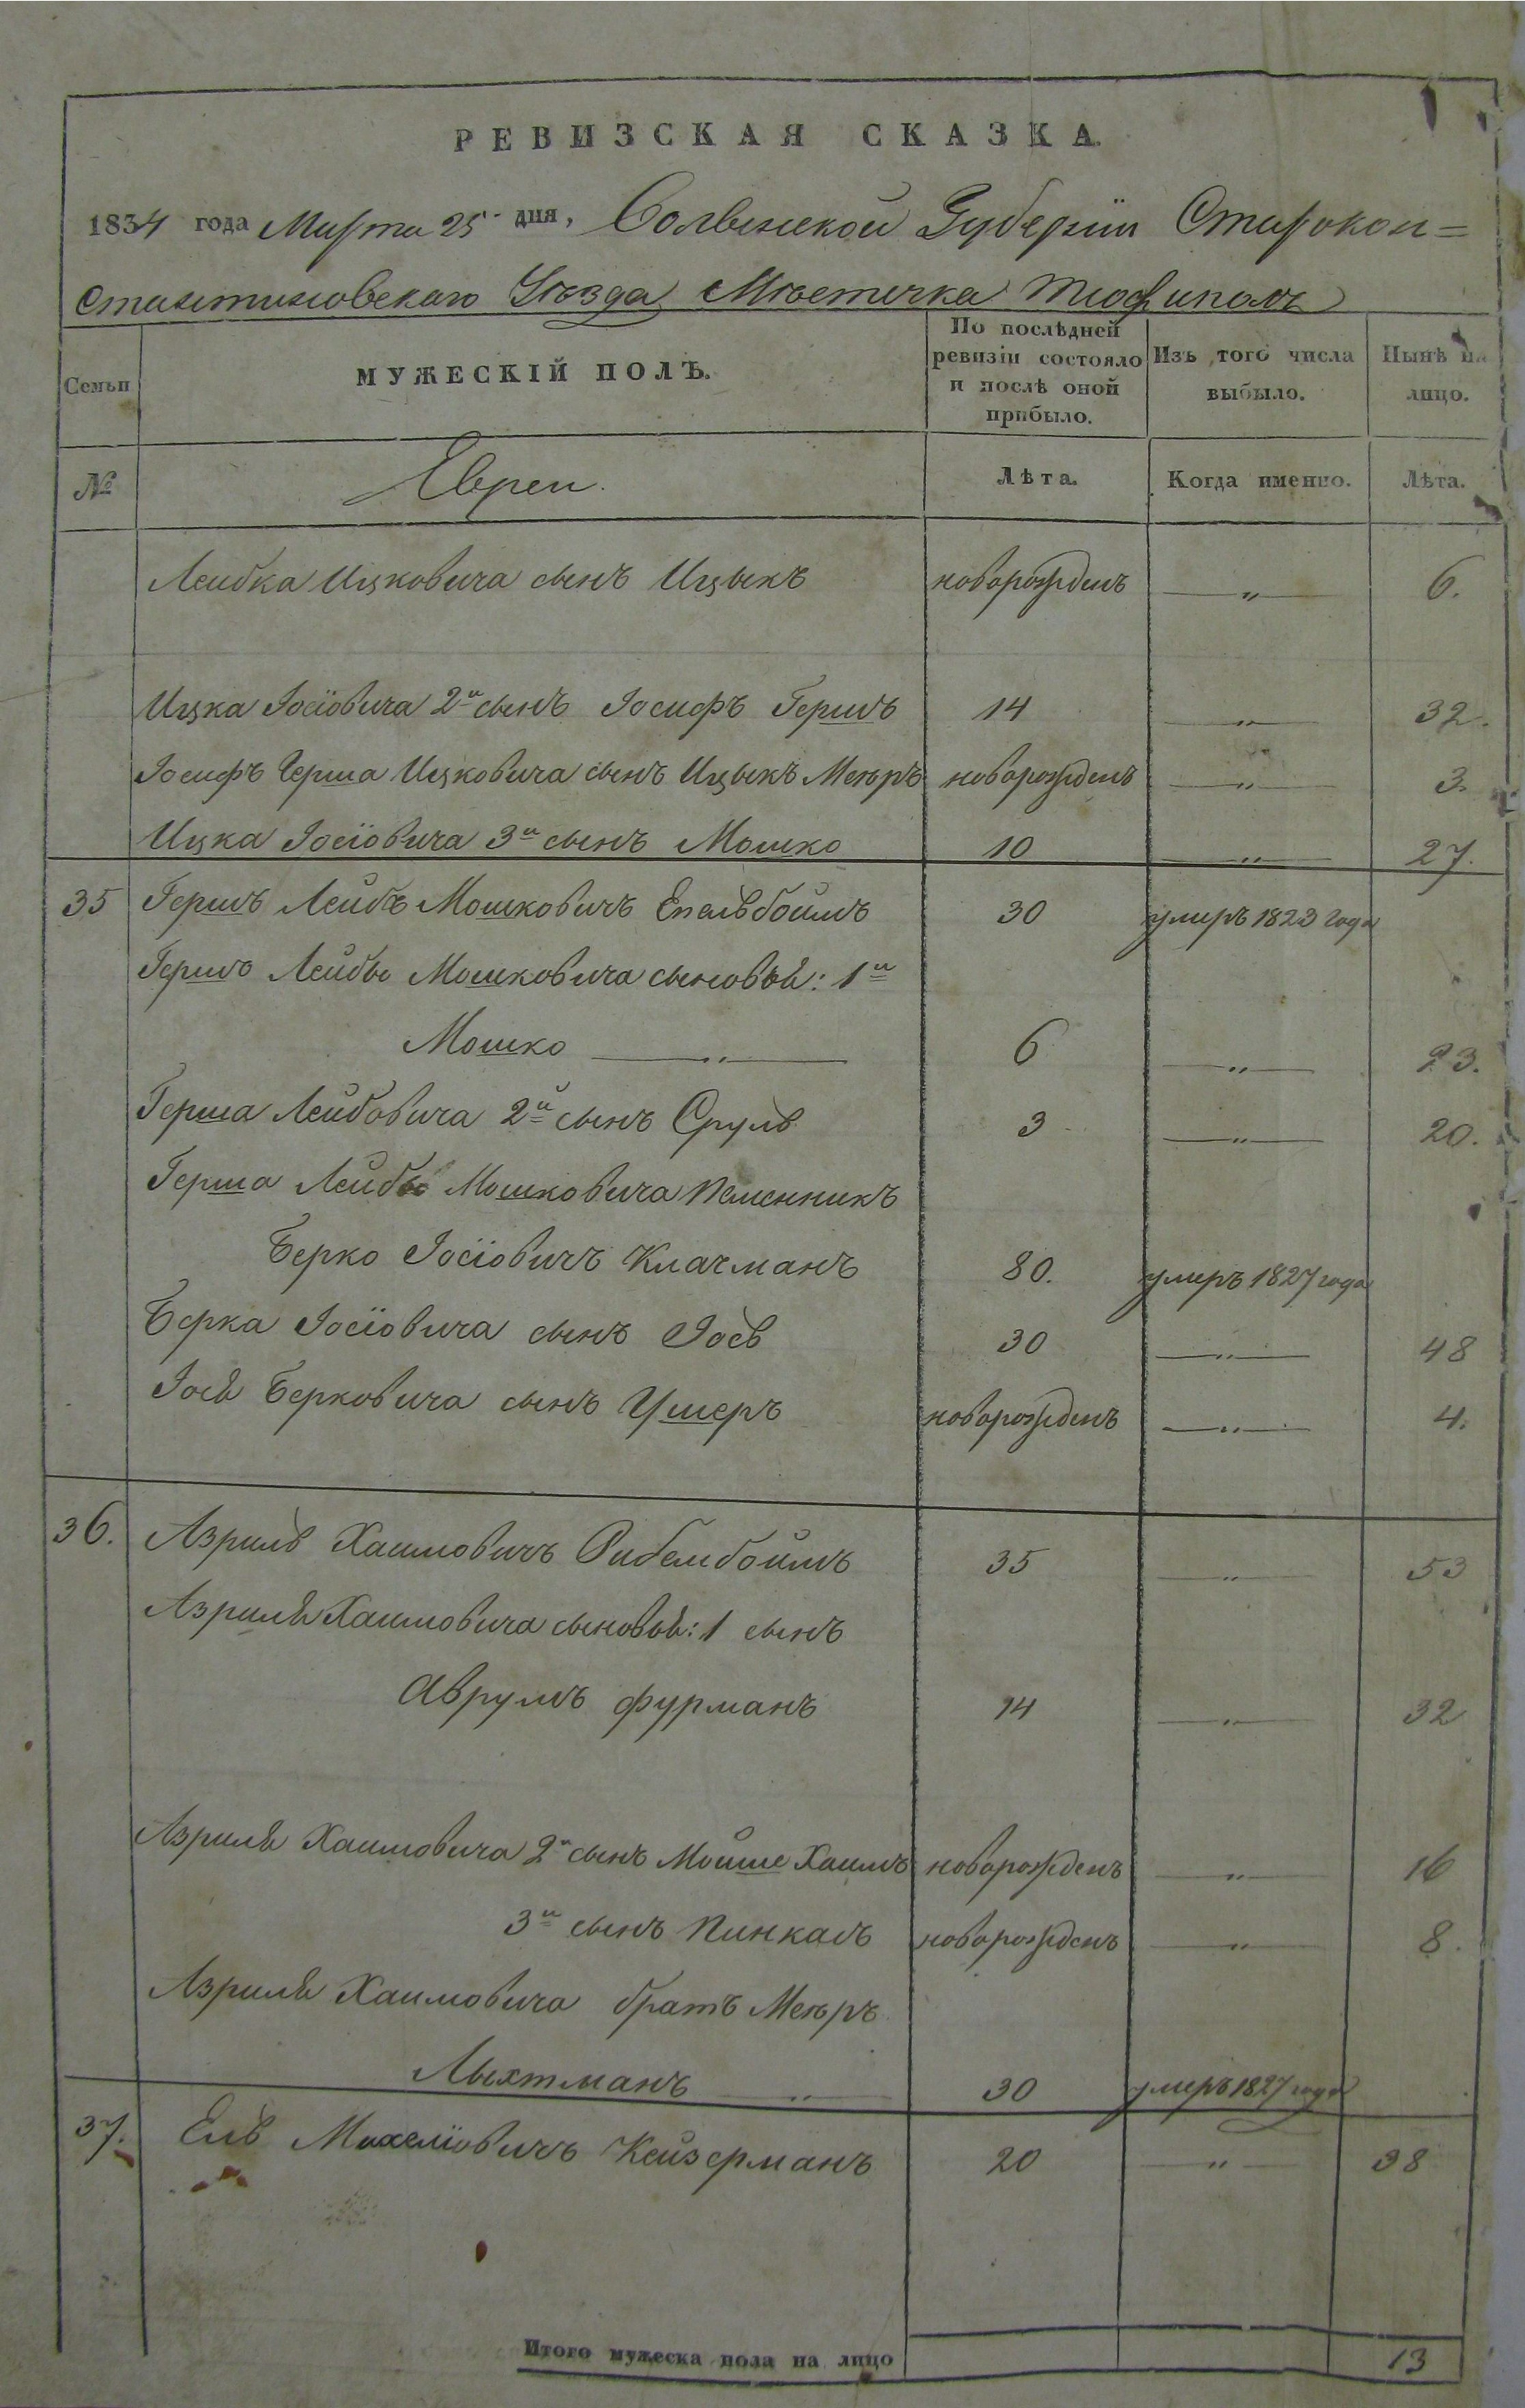 РЕВИЗСКАЯ СКАЗКА.
1834 года Марта 25 дня, Волынской Губернiи Старокон=
стантиновскаго Уѣзда Мѣстечка Тѣофиполь
Семьи
МУЖЕСКІЙ ПОЛЪ.
По послѣдней ревизіи состояло и послѣ оной прибыло.
Изъ того числа выбыло.
Нынѣ на лицо.
№ Евреи. Лѣта. Когда именно. Лѣта.
Лейбка Ицковича сынъ Ицыкъ новорожденъ —„— 6.
Ицка Іосіовича 2й сынъ Іосифъ Гершъ 14 —„— 32.
Іосифъ Герша Ицковича сынъ Ицыкъ Меюръ новорожденъ —„— 3.
Ицка Іосіовича 3й сынъ Мошко 10 —„— 27.
35 Гершъ Лейбъ Мошковичъ Епельбоймъ 30 умеръ 1823 года
Гершъ Лейбы Мошковича сыновья: 1й
Мошко —„— 6 —„— 23.
Герша Лейбовича 2й сынъ Сруль 3 —„— 20.
Герша Лейбы Мошковича племенникъ
Берко Іосіовичъ Клачманъ 80. умеръ 1827 года
Берка Іосіовича сынъ Іось 30 —„— 48
Іося Берковича сынъ Ушеръ новорожденъ —„— 4.
36. Азриль Хаимовичъ Рибембоймъ 35 —„— 53
Азриля Хаимовича сыновья: 1 сынъ
Аврумъ Фурманъ 14 —„— 32
Азриля Хаимовича 2й сынъ Мойше Хаимъ новорожденъ —„— 16
3й сынъ Пинкасъ новорожденъ —„— 8.
Азриля Хаимовича братъ Меюръ
Лыхтманъ —„— 30 умеръ 1827 года
37. Ель Михеліовичъ Кейзерманъ 20 —„— 38
Итого мужеска пола на лицо 13